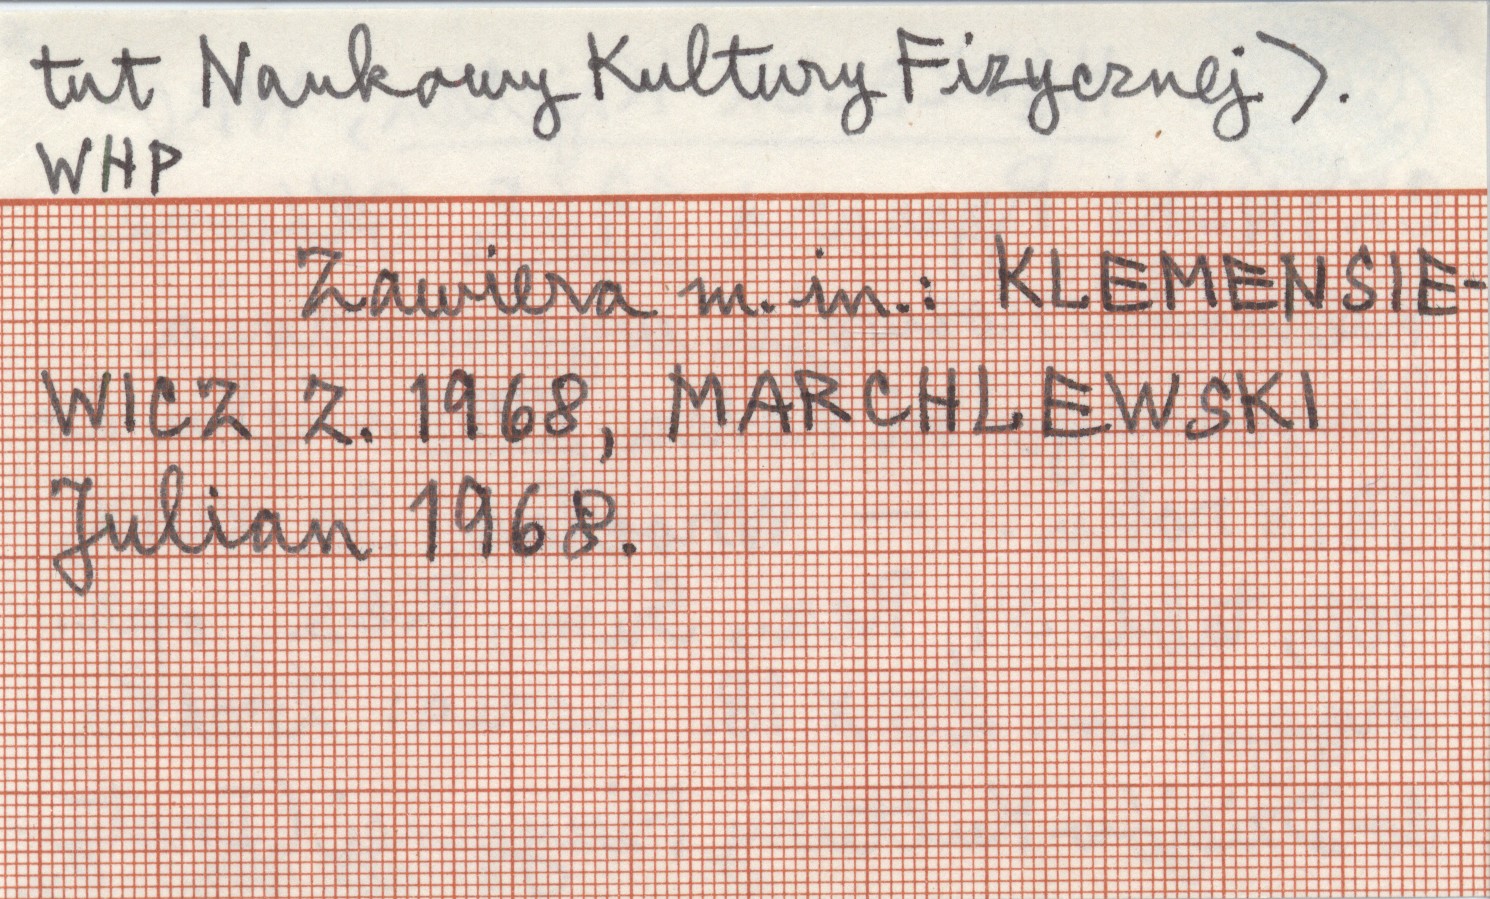 tut Naukowy Kultury Fizycznej>.
WHP
Zawiera m. in.: KLEMENSIE-
WICZ Z. 1968, MARCHLEWSKI
Julian 1968.